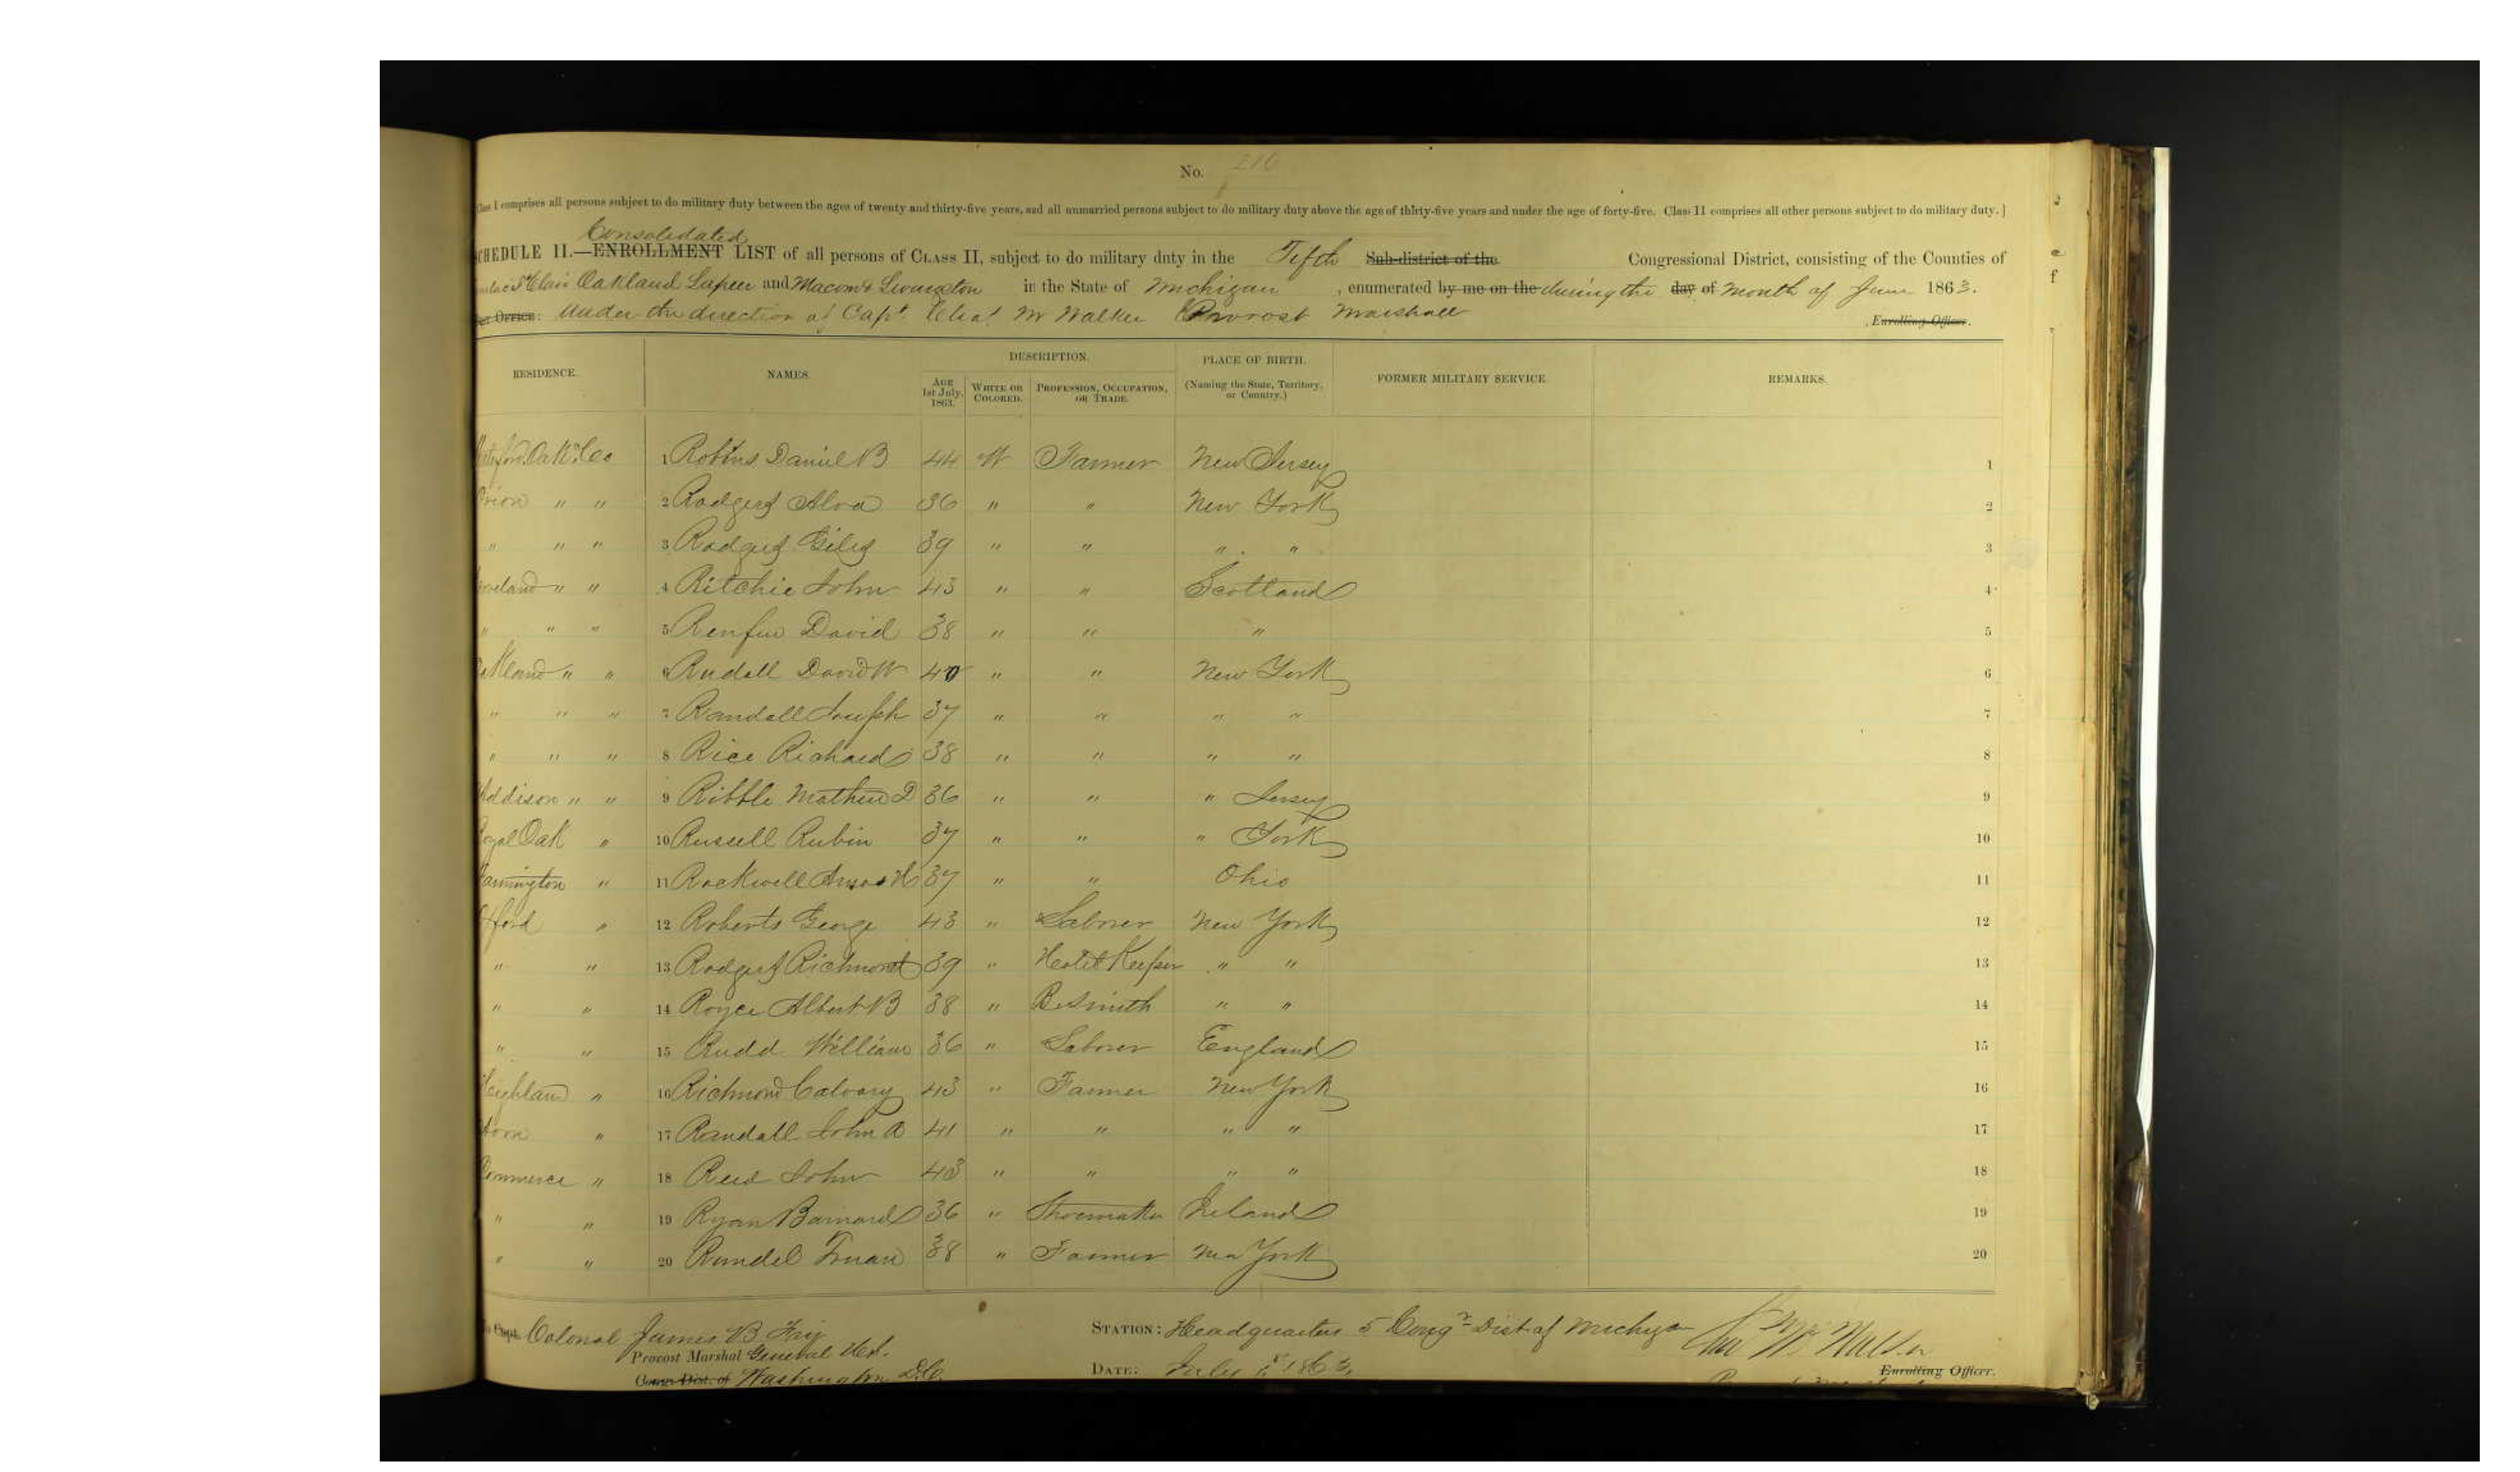 No. 210
Class I comprises all persons subject to do military duty between the ages of twenty and thirty-five years, and all unmarried persons subject to do military duty above the age of thirty-five years and under the age of forty-five. Class II comprises all other persons subject to do military duty.]
Consolidated
CHEDULE II.—ENROLLMENT LIST of all persons of CLASS II, subject to do military duty in the Fifth Sub-district of the Congressional District, consisting of the Counties of
St Clair Oakland Lapeer and Macomb Livingston in the State of Michigan, enumerated by me on the during the day of month of June 1863.
Office: Under the direction of Capt. Chas. M Walker Provost Marshall , Enrolling Officer.
RESIDENCE. NAMES. DESCRIPTION. PLACE OF BIRTH. FORMER MILITARY SERVICE. REMARKS.
AGE 1st July, 1863. WHITE OR COLORED. PROFESSION, OCCUPATION, OR TRADE. (Naming the State, Territory, or Country.)
Waterford Oakd Co 1 Robins Daniel B 44 W Farmer New Jersey 1
Orion " " 2 Rodgers Alva 36 " " New York 2
" " " 3 Rodgers Giles 39 " " " " 3
Groveland " " 4 Ritchie John 43 " " Scotland 4
" " " 5 Renfew David 38 " " " 5
Oakland " " 6 Rudall David W 40 " " New York 6
" " " 7 Randall Joseph 37 " " " " 7
" " " 8 Rice Richard 38 " " " " 8
Addison " " 9 Ribble Mathew D 36 " " " Jersey 9
Royal Oak " 10 Russell Rubin 37 " " " York 10
Farmington " 11 Rockwell H 37 " " Ohio 11
Oxford " 12 Roberts George 43 " Laborer New York 12
" " 13 Rodgers Richmond 39 " Hotel Keeper " " 13
" " 14 Royce Albert B 38 " B. Smith " " 14
" " 15 Rudd William 36 " Laborer England 15
Heighland " 16 Richmond Calvary 43 " Farmer New York 16
" 17 Randall John A 41 " " " " 17
Commerce " 18 Reed John 43 " " " " 18
" " 19 Ryan Barnard 36 " Shoemaker Ireland 19
" " 20 Rundel Truan 38 " Farmer New York 20
Capt. Colonel James B Fry STATION: Headquarters 5 Cong Dist of Michigan
Provost Marshal General U.S. DATE: July 1st 1863.
Cong. Dist. of Washington D.C. Enrolling Officer.